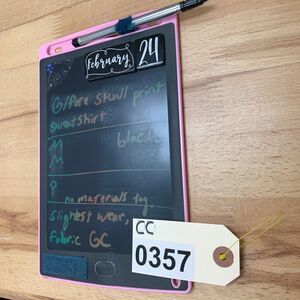 February 24
G/fore skull print
sweatshirt
M black
M
P
no materials tag
slightest wear,
fabric GC
CC
0357